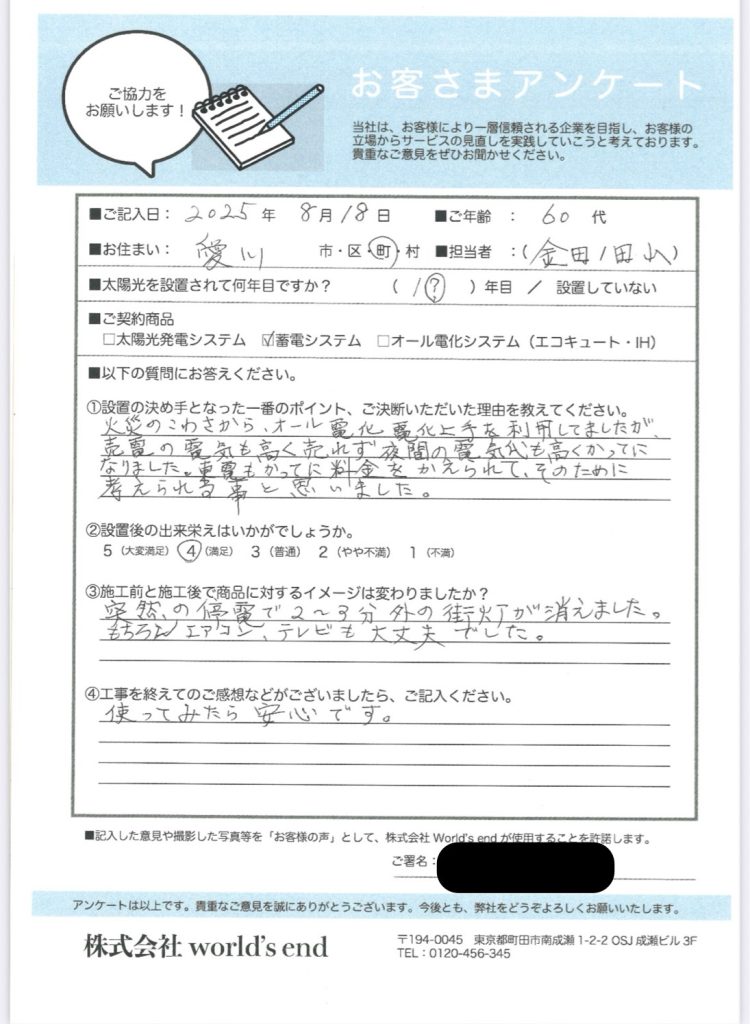 ご協力を
お願いします！
お客さまアンケート
当社は、お客様により一層信頼される企業を目指し、お客様の
立場からサービスの見直しを実践していこうと考えております。
貴重なご意見をぜひお聞かせください。
■ご記入日： 2025年 8月18日 ■ご年齢 ： 60 代
■お住まい： 愛川 市・区・町・村 ■担当者 ：(金田/田山)
■太陽光を設置されて何年目ですか？ （ 1? ）年目 ／ 設置していない
■ご契約商品
□太陽光発電システム ☑蓄電システム □オール電化システム（エコキュート・IH）
■以下の質問にお答えください。
①設置の決め手となった一番のポイント、ご決断いただいた理由を教えてください。
火災のこわさから、オール電化 電化上手を利用してましたが、
売電の電気も高く売れず夜間の電気代も高くかってに
なりました。東電もかってに料金をかえられて、そのために
考えられる事と思いました。
②設置後の出来栄えはいかがでしょうか。
5（大変満足） 4（満足） 3（普通） 2（やや不満） 1（不満）
③施工前と施工後で商品に対するイメージは変わりましたか？
突然の停電で2〜3分外の街灯が消えました。
もちろんエアコン、テレビも大丈夫でした。
④工事を終えてのご感想などがございましたら、ご記入ください。
使ってみたら安心です。
■記入した意見や撮影した写真等を「お客様の声」として、株式会社 World's end が使用することを許諾します。
ご署名：
アンケートは以上です。貴重なご意見を誠にありがとうございます。今後とも、弊社をどうぞよろしくお願いいたします。
株式会社 world's end
〒194-0045 東京都町田市南成瀬 1-2-2 OSJ 成瀬ビル 3F
TEL：0120-456-345